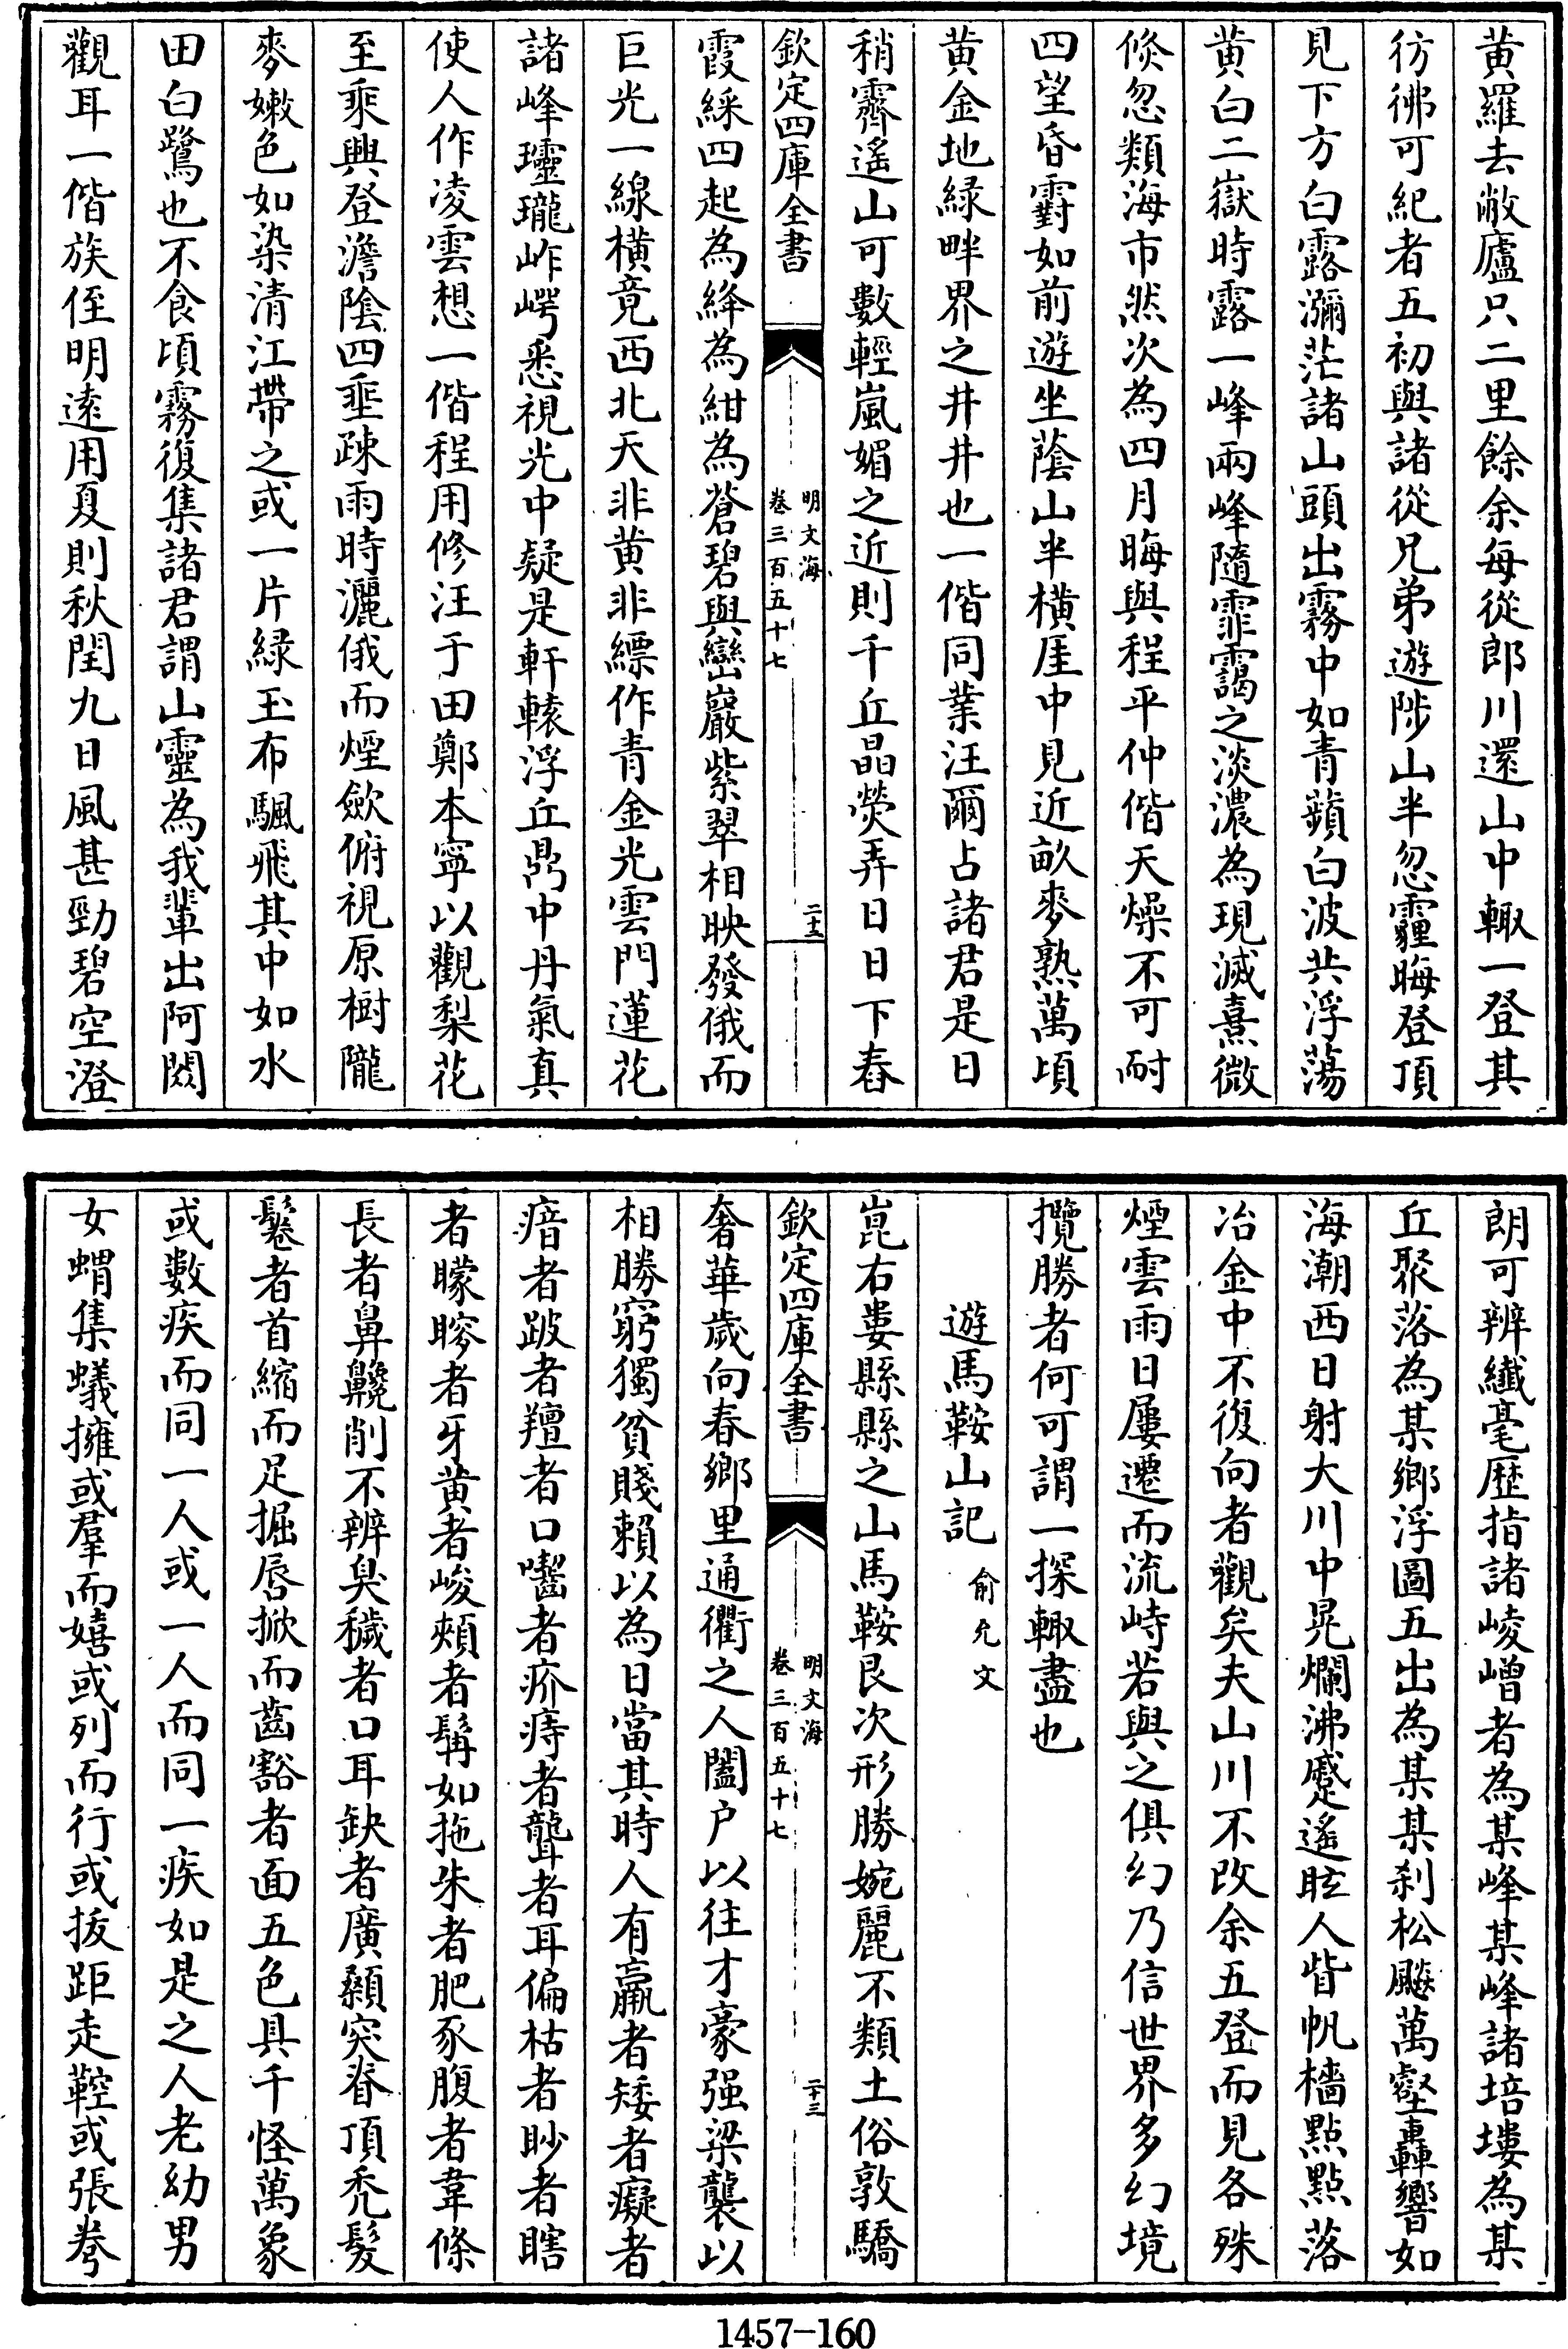 黄羅去敝廬只二里餘余每從郎川還山中輙一登其
彷彿可紀者五初與諸從兄弟遊陟山半忽霾晦登頂
見下方白露瀰茫諸山頭出霧中如青蘋白波共浮蕩
黄白二嶽時露一峰兩峰隨霏靄之淡濃為現滅熹微
倏忽類海市然次為四月晦與程平仲偕天燥不可耐
四望昏霨如前遊坐蔭山半橫厓中見近畝麥熟萬頃
黄金地緑畔界之井井也一偕同業汪爾占諸君是日
稍霽遥山可數輕嵐媚之近則千丘晶熒弄日日下舂
欽定四庫全書
明文海
卷三百五十七
二十二
霞綵四起為絳為紺為蒼碧與巒巖紫翠相映發俄而
巨光一線橫竟西北天非黄非縹作青金光雲門蓮花
諸峰瓏岞崿悉視光中疑是軒轅浮丘鼎中丹氣真
使人作凌雲想一偕程用修汪于田鄭本寧以觀梨花
至乘興登澹陰四垂疎雨時灑俄而煙歛俯視原樹隴
麥嫩色如染清江帶之或一片緑玉布颿飛其中如水
田白鷺也不食頃霧復集諸君謂山靈為我輩出阿閦
觀耳一偕族侄明遠用夏則秋閏九日風甚勁碧空澄
朗可辨纖毫歴指諸崚嶒者為某峰某峰諸培塿為某
丘聚落為某鄉浮圖五出為某某刹松飈萬壑轟響如
海潮西日射大川中晃爛沸蹙遥眩人眥帆檣點點落
冶金中不復向者觀矣夫山川不改余五登而見各殊
煙雲雨日屢遷而流峙若與之俱幻乃信世界多幻境
攬勝者何可謂一探輙盡也
遊馬鞍山記 俞允文
崑右婁縣縣之山馬鞍艮次形勝婉麗不類土俗敦驕
欽定四庫全書
明文海
卷三百五十七
二十三
奢華歲向春鄉里通衢之人闔户以往才豪强梁襲以
相勝窮獨貧賤賴以為日當其時人有羸者矮者癡者
瘖者跛者羶者口噤者疥痔者聾者耳偏枯者眇者瞎
者矇瞜者牙黄者峻頰者髯如拖朱者肥豕腹者韋條
長者鼻齆削不辨臭穢者口耳缺者廣顙突脊頂禿髮
鬈者首縮而足掘唇掀而齒豁者面五色具千怪萬象
或數疾而同一人或一人而同一疾如是之人老幼男
女蝟集蟻擁或羣而嬉或列而行或拔距走鞚或張拳
1457-160